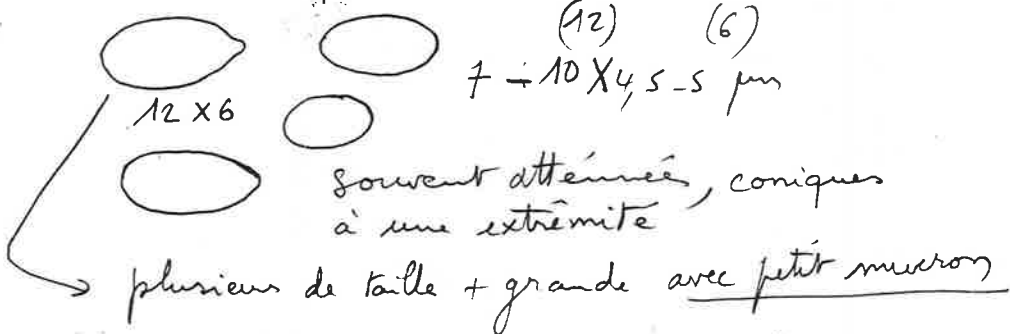 (12) (6)
7 - 10 X 4,5-5 µm
12 X 6
souvent atténuées, coniques
à une extrêmité
plusieurs de taille + grande avec petit mucron